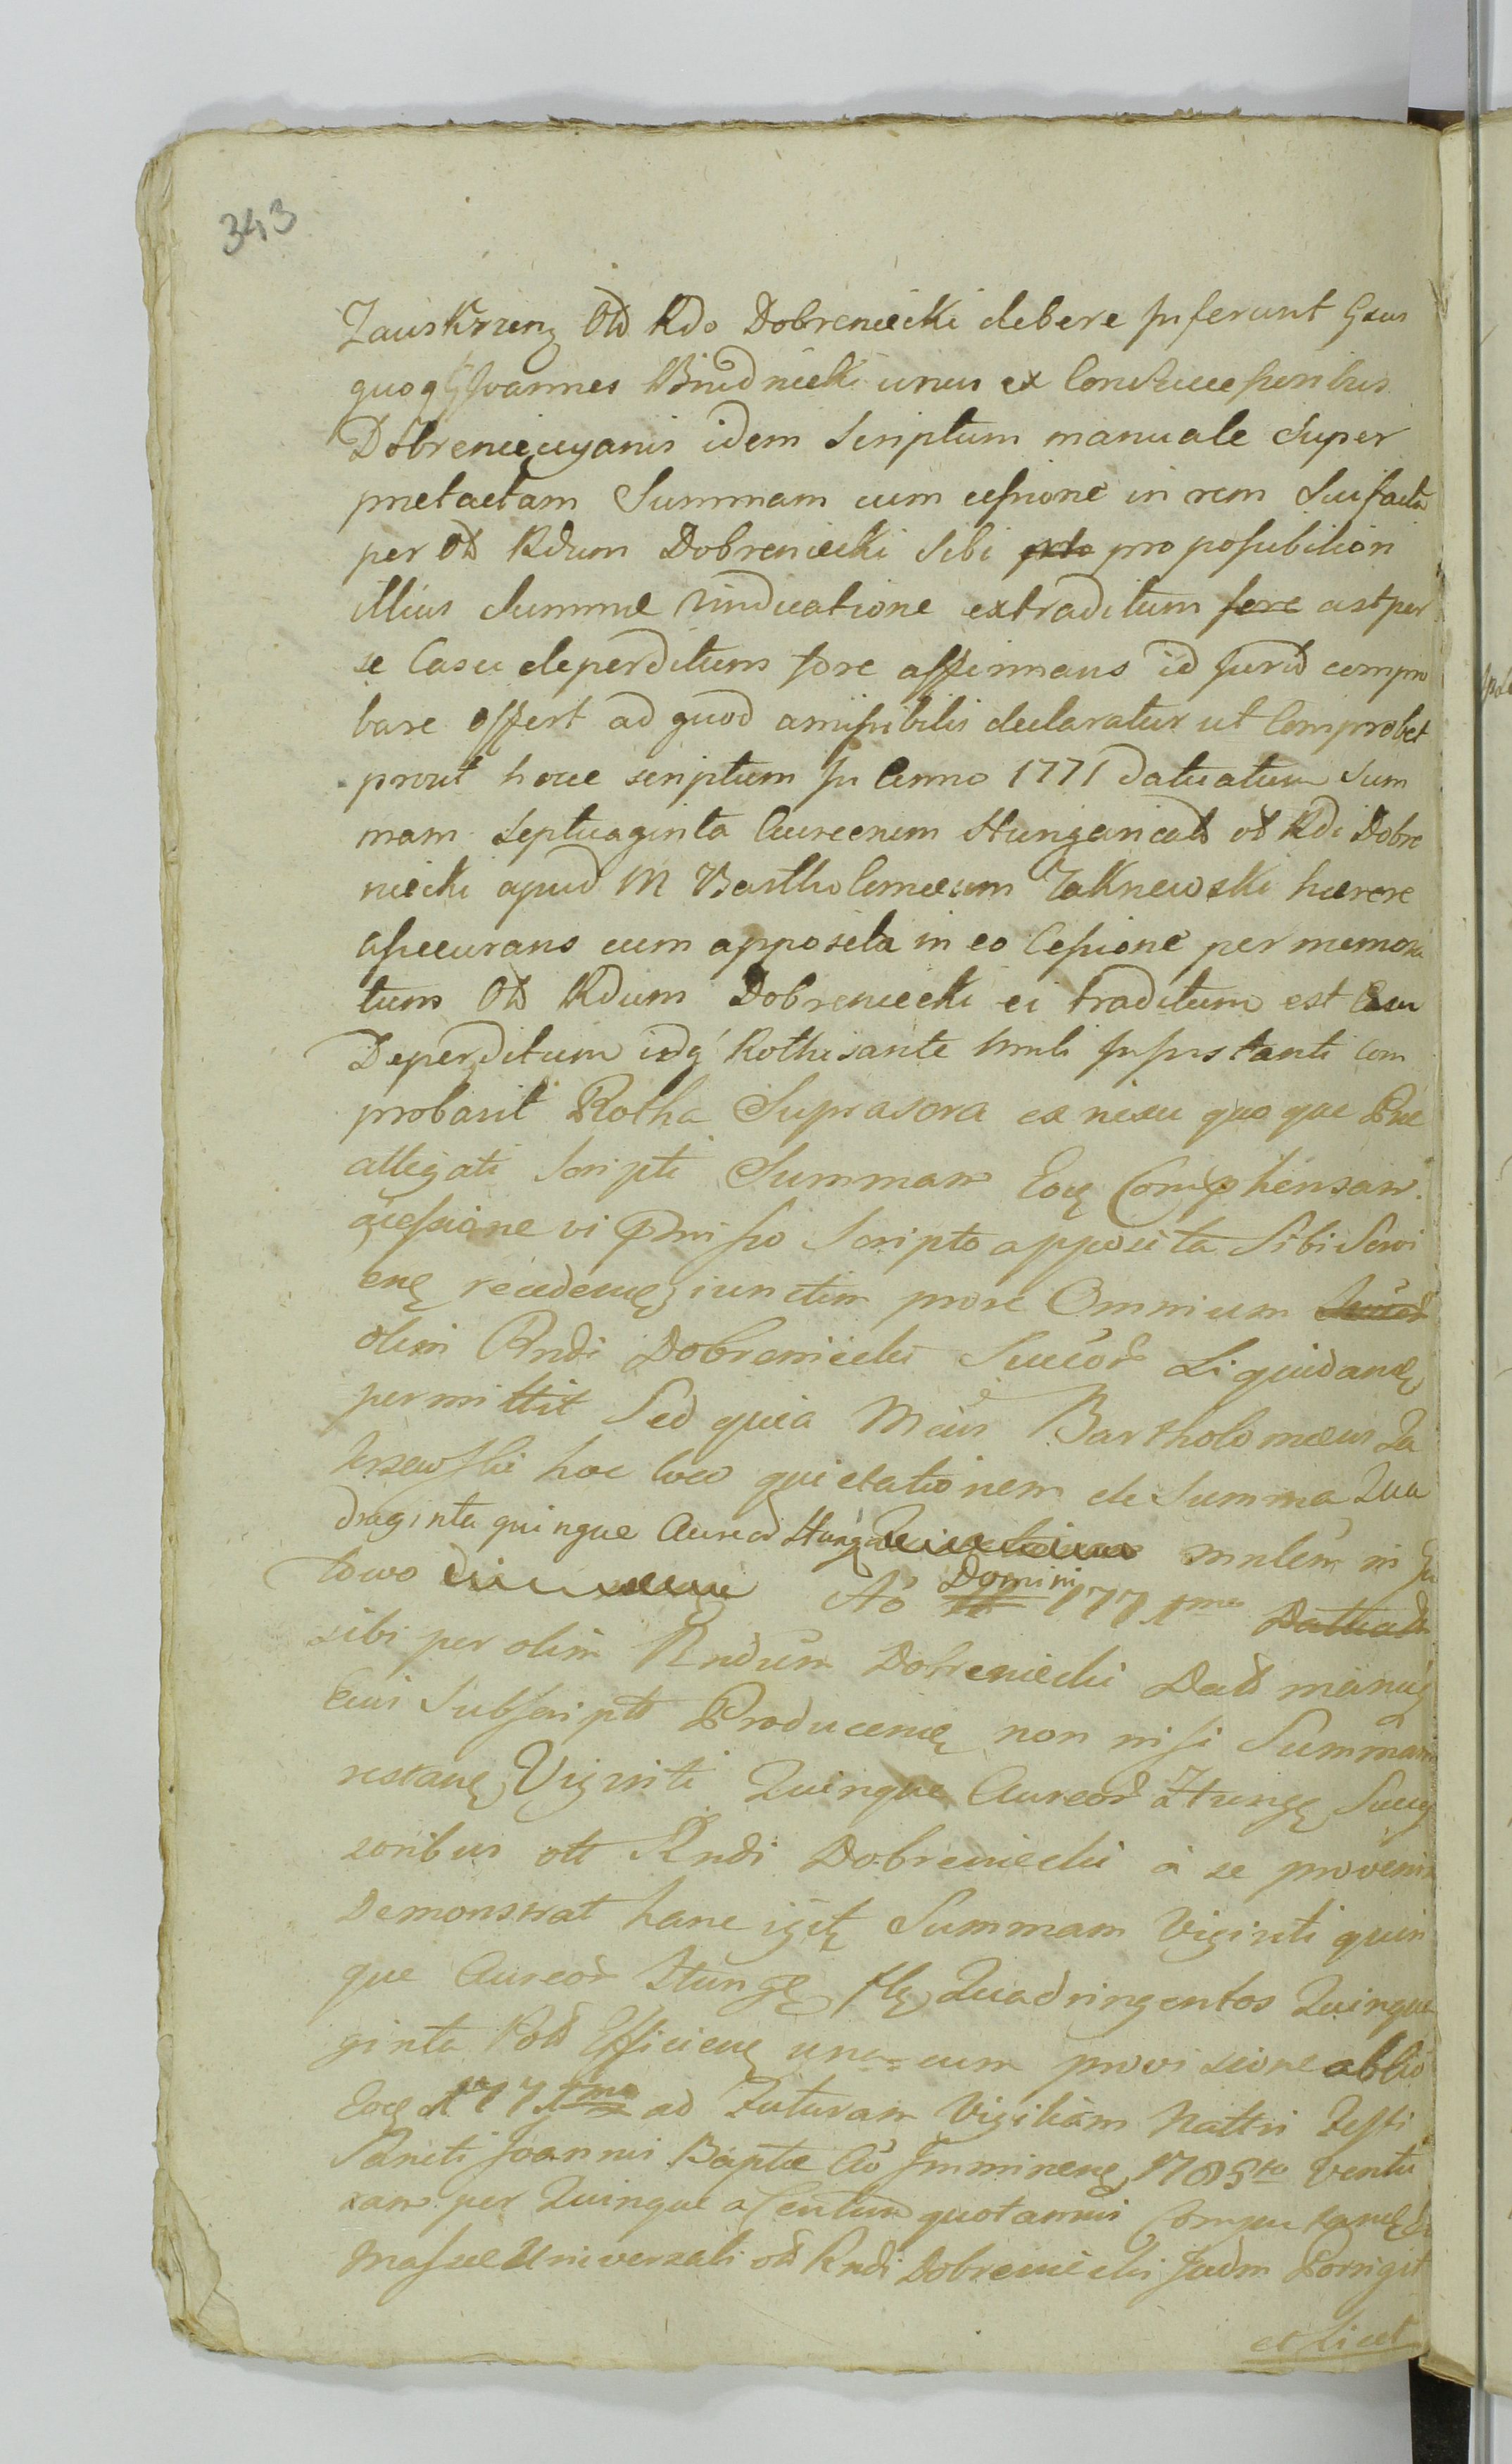 343
Zauskrzeng Old Rdo Dobreniecki debere inferunt Gsus
quoq Joannes Brudnicki unus ex Con
Dobreniecqyanis idem Scriptum manuale Super
pretactam Summam cum cessione in rem Sui facta
per Old Rdum Dobreniecki Sibi pro possibilion
illius Summæ vindicatione extraditum fore ast per
se Casu deperditum fore affirmans id jurto compro
bare offert ad quod amissibilis declaratur ut Comprobet
prout hocce scriptum In Anno 1771 datuatum Sum
mam Septuaginta Aureorum Hungaricald old Rdi Dobre
niecki apud M Bartholomæum Zakrzewski hærere
assecurans cum apposita in eo Cessione per memora
tum Old Rdum Dobreniecki ei traditum est
Deperditum idq Rothisante Mnli Instanti com
probavit Rotha Suprascra ex nexu quoque Præ
allegati Scripti Summam Eoq Comphensam
qcessione vi Præmisso Scripto apposita Sibi Servi
enq recedenq iunctim prore Omnium
olim Rndi Dobreniecki Succor Liquidanq
permittit Sed quia Mcus Bartholomæus Za
krzewski hoc loco quietationem de Summa Qua
draginta quinque Aureor Hung mnlem in Gu
towo Ao Domini 1771mo Datuatu
sibi per olim Rndum Dobreniecki Datd manuq
Eius Subscriptt Producenq non nisi Summam
restanq Viginti Quinque Aureor Hungq Succes
soribus ott Rndi Dobreniecki à se provenire
Demonstrat hanc igitq Summam Viginti quin
que Aureor Hungq flq Quadringentos Quinqua
ginta Pold Efficienq una=cum provisione ab
Eoq 1771mo ad Futuram Vigiliam Nattis Festi
Sancti Joannis Baptæ Ao Imminenq 1785to Ventu
ram per Quinque a Centum quotannis Computanq
Massæ Universali old Rndi Dobreniecki Judm Porrigit
et Licet